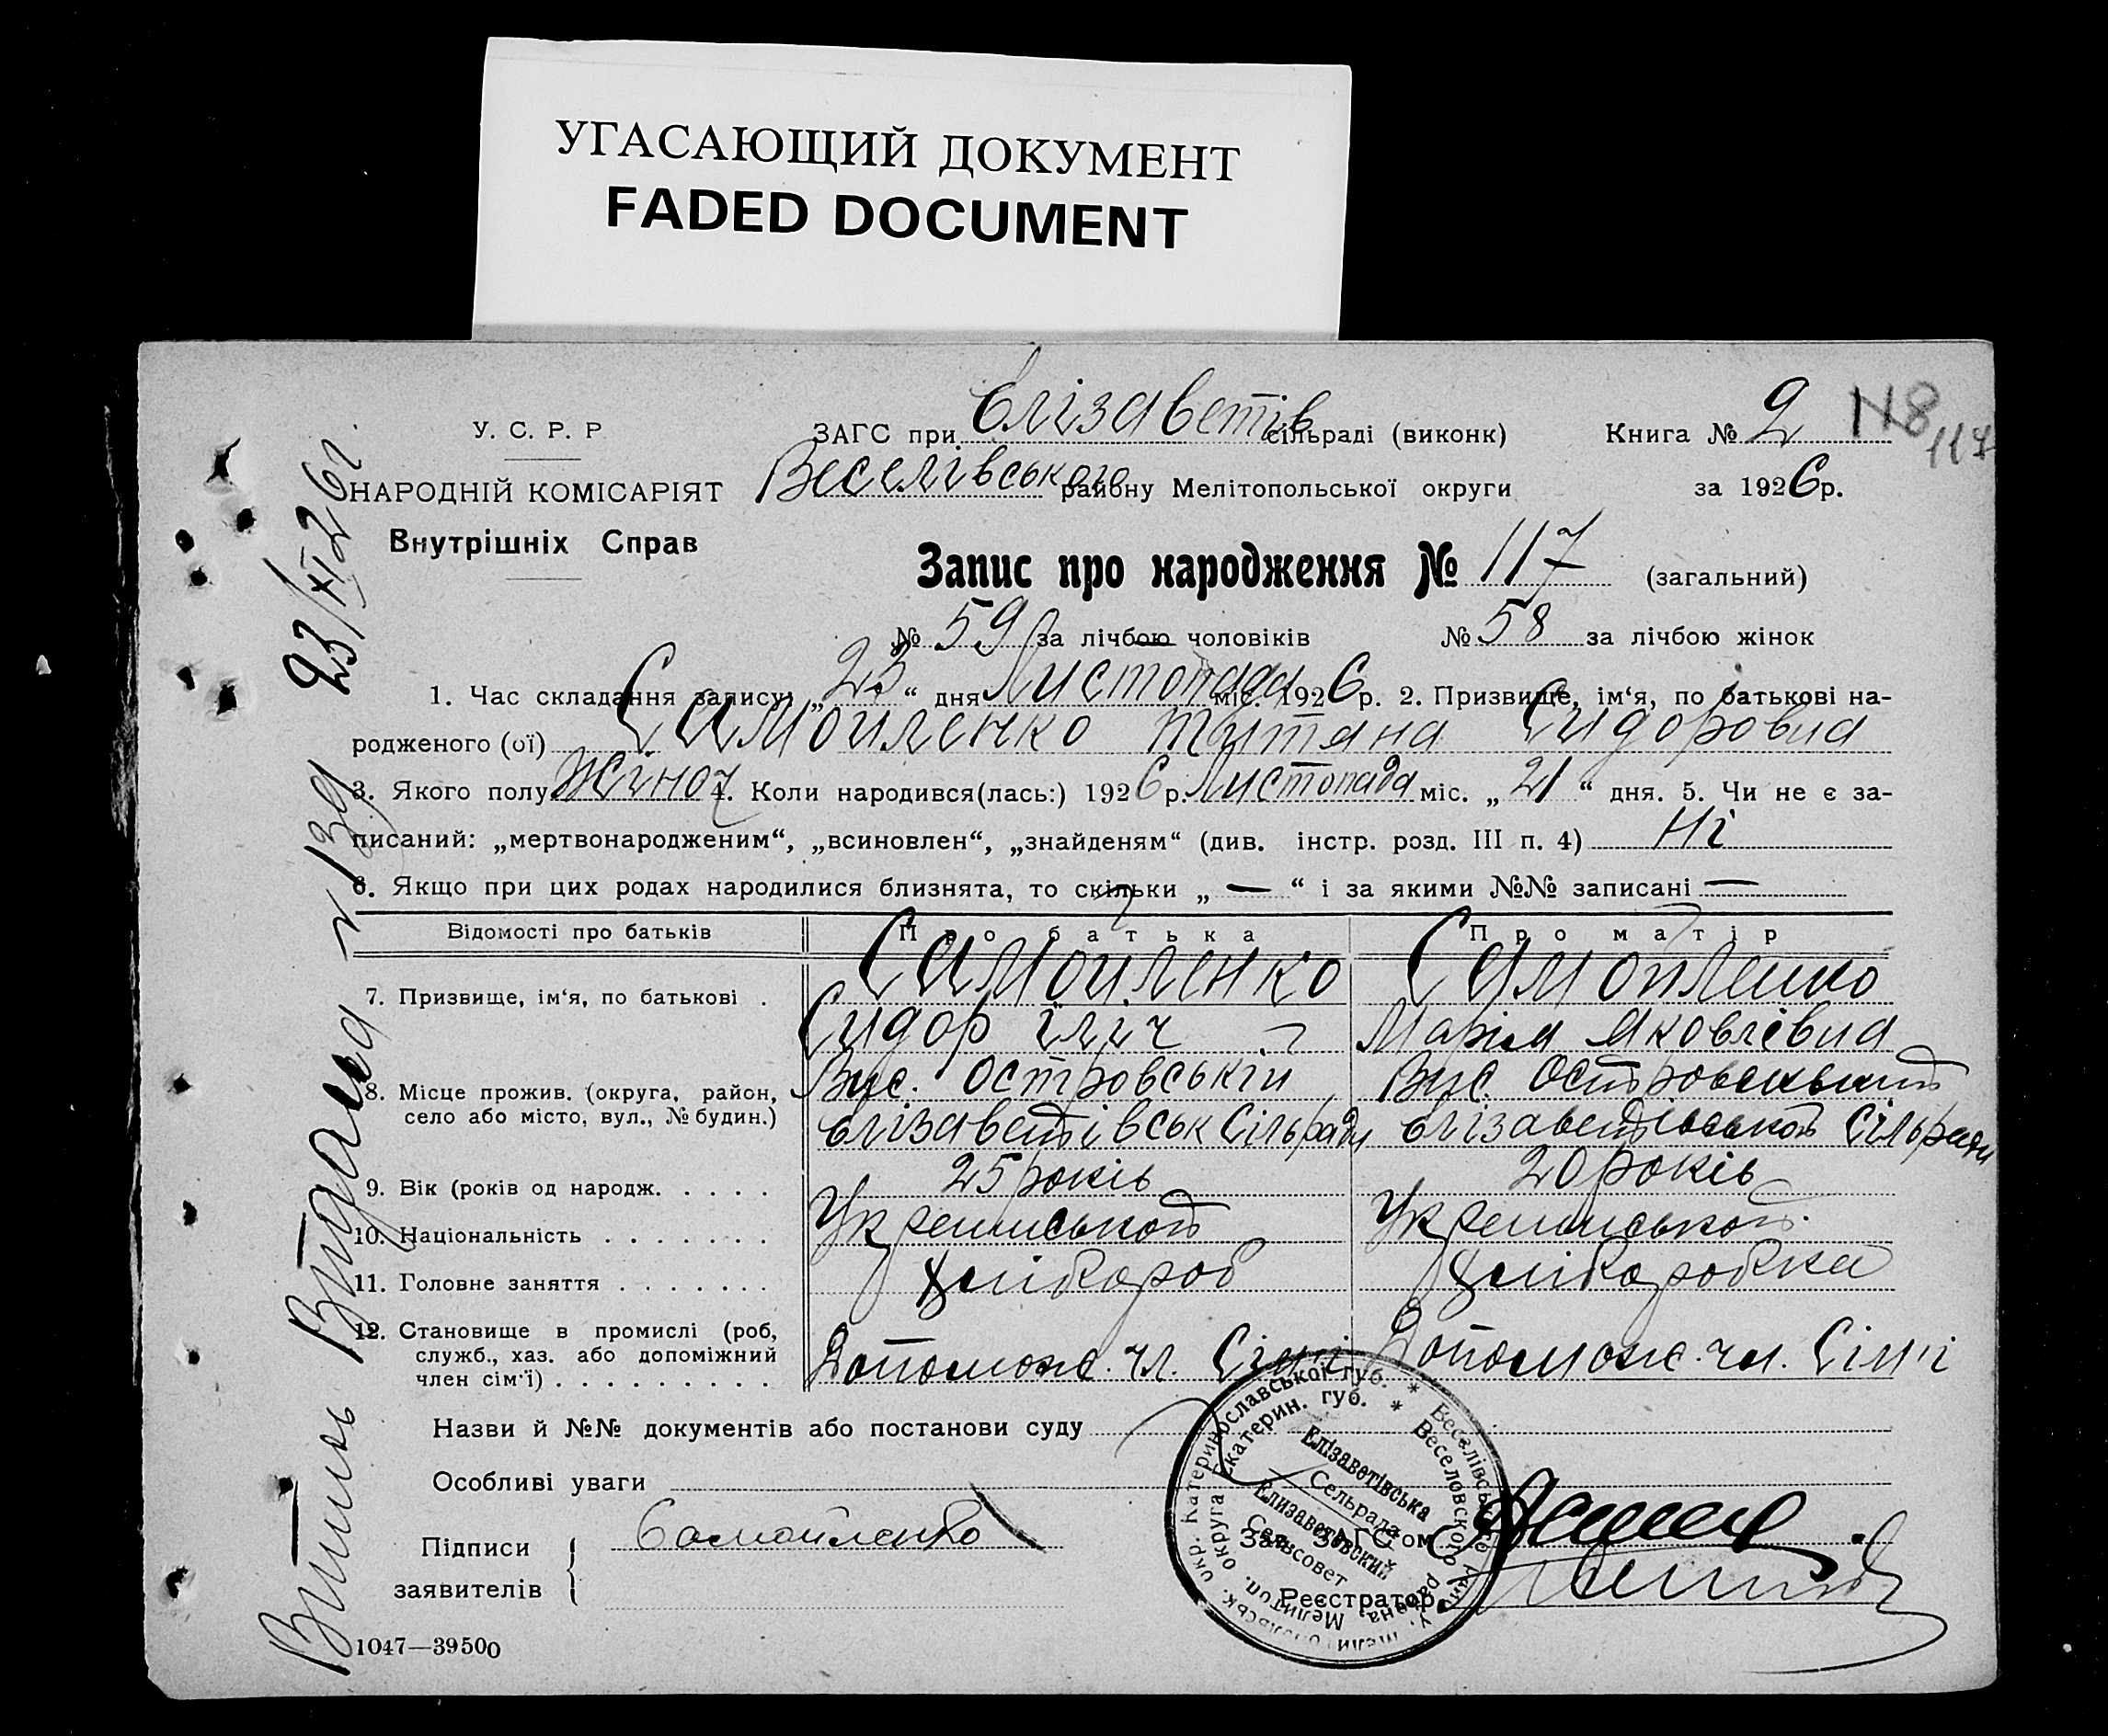 УГАСАЮЩИЙ ДОКУМЕНТ
FADED DOCUMENT
У. С. Р. Р
НАРОДНІЙ КОМІСАРІЯТ
Внутрішніх Справ
ЗАГС при Єлізаветів сільраді (виконк)
Веселівського району Мелітопольської округи
Книга № 2
118
117
за 1926 р.
Запис про народження № 117 (загальний)
№ 59 за лічбою чоловіків № 58 за лічбою жінок
1. Час складання запису: „23“ дня Листопада міс. 1926 р. 2. Призвище, ім‘я, по батькові на-
родженого (ої) Самойленко Титяна Сидоровна
3. Якого полу Жіноч 4. Коли народився(лась:) 1926 р. Листопада міс. „21“ дня. 5. Чи не є за-
писаний: „мертвонародженим“, „всиновлен“, „знайденям“ (див. інстр. розд. III п. 4) Ні
6. Якщо при цих родах народилися близнята, то скільки „—“ і за якими №№ записані —
Відомості про батьків Про батька Про матір
7. Призвище, ім‘я, по батькові . Самойленко Самойленко
Сидор Іліч Марія Яковлєвна
8. Місце прожив. (округа, район, Вис. Островський Вис.
село або місто, вул., № будин.) Єлізаветівськ Сільради Єлізаветівської Сільради
9. Вік (років од народж. . . . . 25 років 20 років
10. Національність . . . . . . . Української Української
11. Головне заняття . . . . . . . Хлібороб Хліборобка
12. Становище в промислі (роб, служб., хаз. або допоміжний член сім‘ї) . . . . . . . . . Допомож. чл. Сім'ї Допомож. чл. Сім'ї
Назви й №№ документів або постанови суду
Особливі уваги
Підписи
заявителів
Самойленко
Зав. ЗАГС'ом
Реєстратор
Катеринославської губ. * Веселівськ
Екатерин. губ. * Веселовского района,
Мелитоп. округа
Елізаветівська
Сельрада
Елизаветовский
Сельсовет
1047—39500
Витяг Видана 23/XI 26 г.